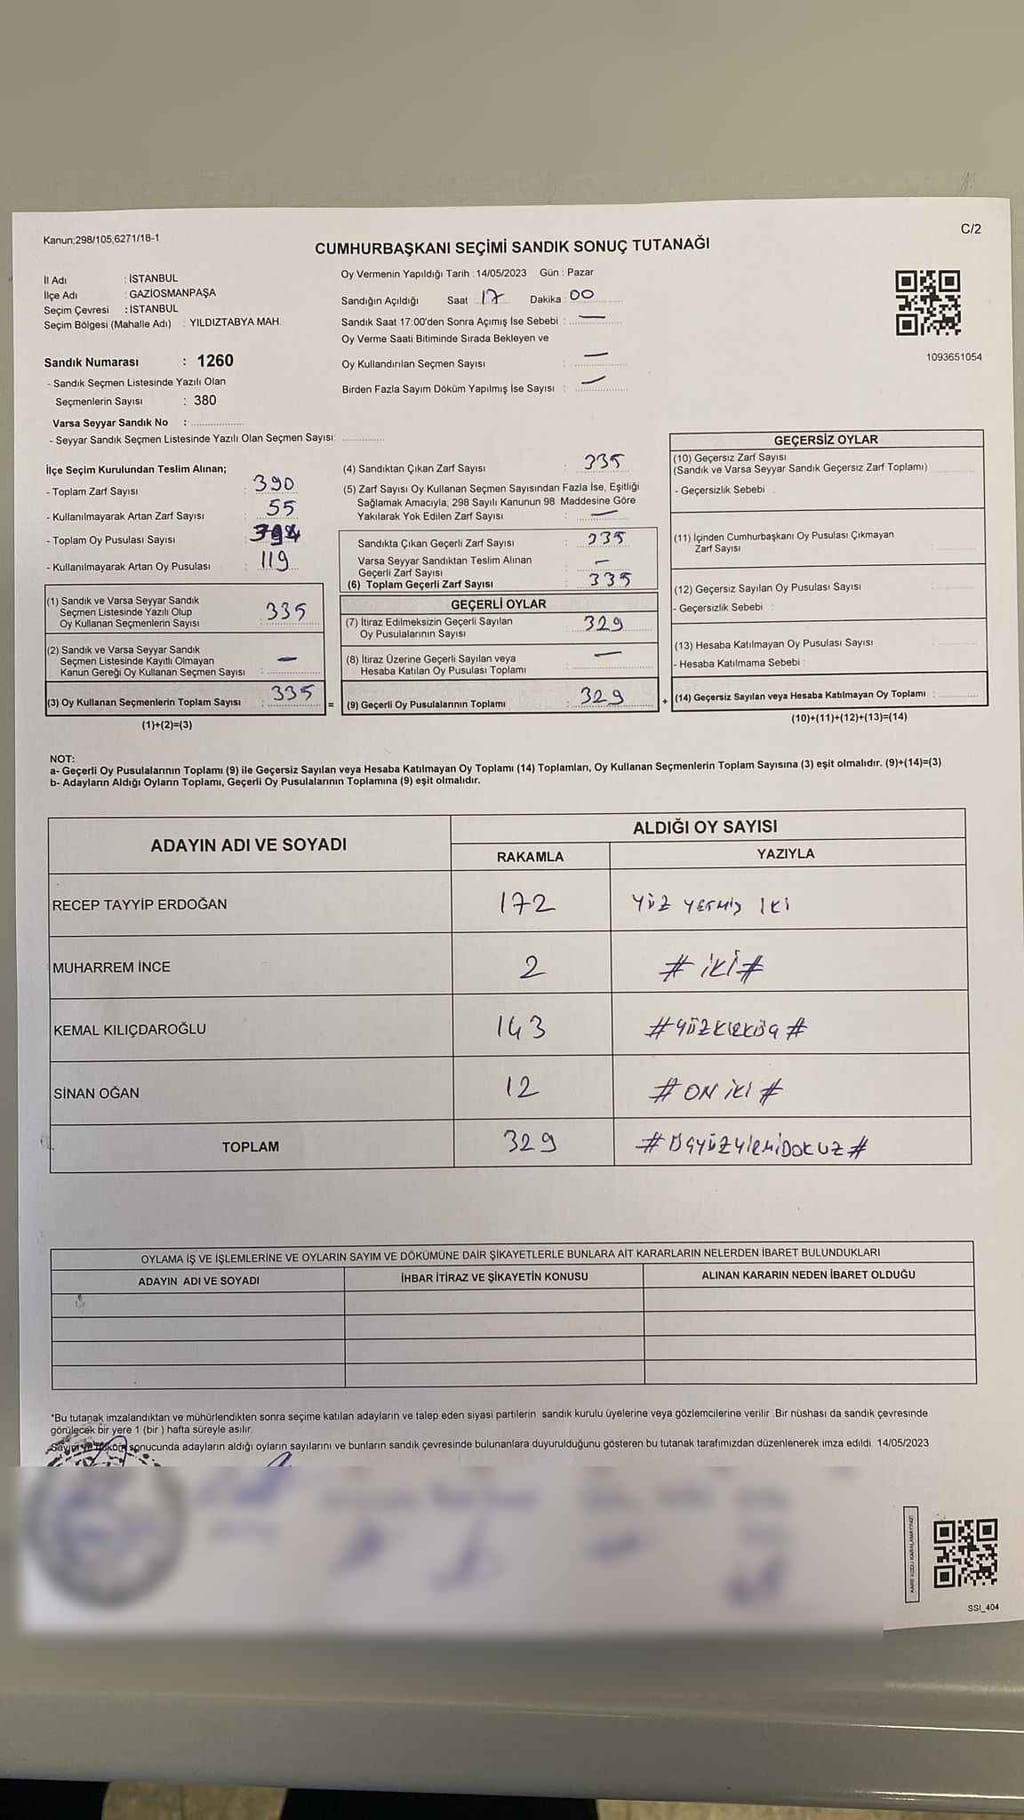 Kanun;298/105,6271/18-1
C/2
CUMHURBAŞKANI SEÇİMİ SANDIK SONUÇ TUTANAĞI
İl Adı : İSTANBUL
İlçe Adı : GAZİOSMANPAŞA
Seçim Çevresi : İSTANBUL
Seçim Bölgesi (Mahalle Adı) : YILDIZTABYA MAH.
Oy Vermenin Yapıldığı Tarih : 14/05/2023 Gün : Pazar
Sandığın Açıldığı Saat 17 Dakika : 00
Sandık Saat 17:00'den Sonra Açımış İse Sebebi : —
Oy Verme Saati Bitiminde Sırada Bekleyen ve
Oy Kullandırılan Seçmen Sayısı : —
Birden Fazla Sayım Döküm Yapılmış İse Sayısı : —
1093651054
Sandık Numarası : 1260
- Sandık Seçmen Listesinde Yazılı Olan
Seçmenlerin Sayısı : 380
Varsa Seyyar Sandık No :
- Seyyar Sandık Seçmen Listesinde Yazılı Olan Seçmen Sayısı
İlçe Seçim Kurulundan Teslim Alınan;
- Toplam Zarf Sayısı : 390
- Kullanılmayarak Artan Zarf Sayısı : 55
- Toplam Oy Pusulası Sayısı :
- Kullanılmayarak Artan Oy Pusulası : 119
(1) Sandık ve Varsa Seyyar Sandık
Seçmen Listesinde Yazılı Olup
Oy Kullanan Seçmenlerin Sayısı : 335
(2) Sandık ve Varsa Seyyar Sandık
Seçmen Listesinde Kayıtlı Olmayan
Kanun Gereği Oy Kullanan Seçmen Sayısı : —
(3) Oy Kullanan Seçmenlerin Toplam Sayısı : 335
(1)+(2)=(3)
=
(4) Sandıktan Çıkan Zarf Sayısı : 335
(5) Zarf Sayısı Oy Kullanan Seçmen Sayısından Fazla İse, Eşitliği
Sağlamak Amacıyla, 298 Sayılı Kanunun 98. Maddesine Göre
Yakılarak Yok Edilen Zarf Sayısı : —
Sandıkta Çıkan Geçerli Zarf Sayısı : 335
Varsa Seyyar Sandıktan Teslim Alınan
Geçerli Zarf Sayısı : —
(6) Toplam Geçerli Zarf Sayısı : 335
GEÇERLİ OYLAR
(7) İtiraz Edilmeksizin Geçerli Sayılan
Oy Pusulalarının Sayısı : 329
(8) İtiraz Üzerine Geçerli Sayılan veya
Hesaba Katılan Oy Pusulası Toplamı : —
(9) Geçerli Oy Pusulalarının Toplamı : 329
+
GEÇERSİZ OYLAR
(10) Geçersiz Zarf Sayısı
(Sandık ve Varsa Seyyar Sandık Geçersiz Zarf Toplamı)
- Geçersizlik Sebebi :
(11) İçinden Cumhurbaşkanı Oy Pusulası Çıkmayan
Zarf Sayısı
(12) Geçersiz Sayılan Oy Pusulası Sayısı
- Geçersizlik Sebebi :
(13) Hesaba Katılmayan Oy Pusulası Sayısı
- Hesaba Katılmama Sebebi :
(14) Geçersiz Sayılan veya Hesaba Katılmayan Oy Toplamı :
(10)+(11)+(12)+(13)=(14)
NOT:
a- Geçerli Oy Pusulalarının Toplamı (9) ile Geçersiz Sayılan veya Hesaba Katılmayan Oy Toplamı (14) Toplamları, Oy Kullanan Seçmenlerin Toplam Sayısına (3) eşit olmalıdır. (9)+(14)=(3)
b- Adayların Aldığı Oyların Toplamı, Geçerli Oy Pusulalarının Toplamına (9) eşit olmalıdır.
ADAYIN ADI VE SOYADI ALDIĞI OY SAYISI
RAKAMLA YAZIYLA
RECEP TAYYİP ERDOĞAN 172 YÜZ YETMİŞ İKİ
MUHARREM İNCE 2 # İKİ #
KEMAL KILIÇDAROĞLU 143 # YÜZKIRKÜÇ #
SİNAN OĞAN 12 # ON İKİ #
TOPLAM 329 # ÜÇYÜZYİRMİDOKUZ #
OYLAMA İŞ VE İŞLEMLERİNE VE OYLARIN SAYIM VE DÖKÜMÜNE DAİR ŞİKAYETLERLE BUNLARA AİT KARARLARIN NELERDEN İBARET BULUNDUKLARI
ADAYIN ADI VE SOYADI İHBAR İTİRAZ VE ŞİKAYETİN KONUSU ALINAN KARARIN NEDEN İBARET OLDUĞU
*Bu tutanak imzalandıktan ve mühürlendikten sonra seçime katılan adayların ve talep eden siyasi partilerin sandık kurulu üyelerine veya gözlemcilerine verilir. Bir nüshası da sandık çevresinde
görülecek bir yere 1 (bir ) hafta süreyle asılır.
sonucunda adayların aldığı oyların sayılarını ve bunların sandık çevresinde bulunanlara duyurulduğunu gösteren bu tutanak tarafımızdan düzenlenerek imza edildi. 14/05/2023
SSI_404